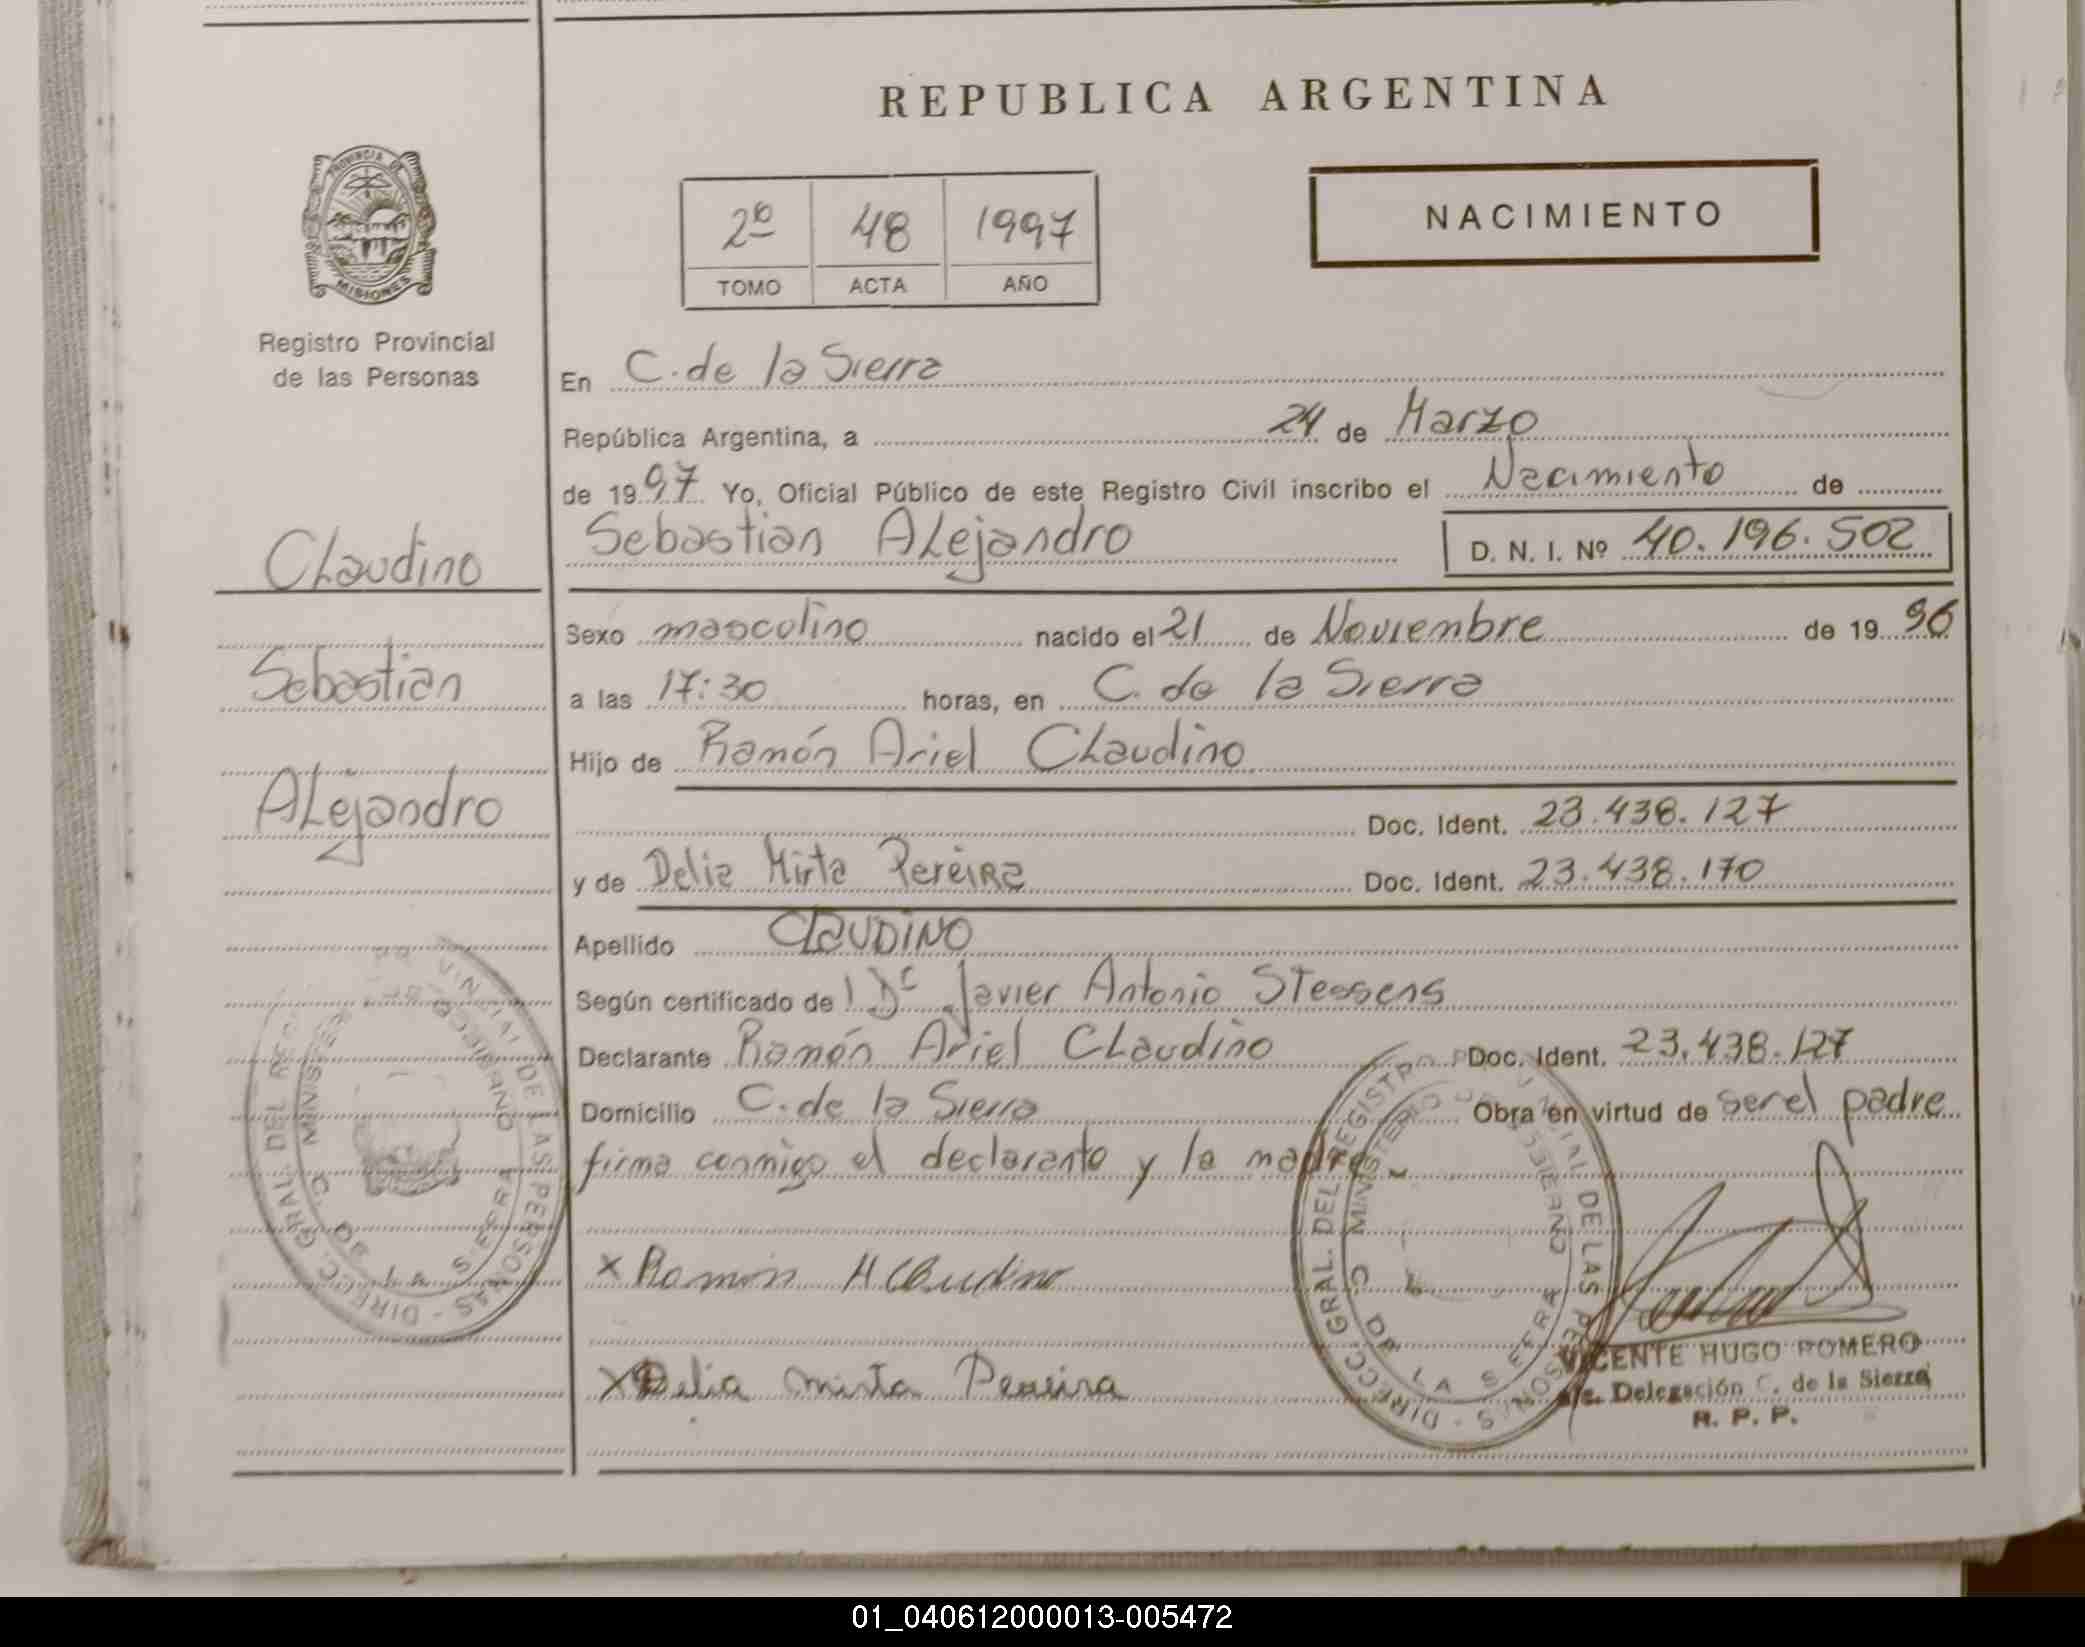 REPUBLICA ARGENTINA
PROVINCIA DE
MISIONES
Registro Provincial
de las Personas
2º 48 1997
TOMO ACTA AÑO
NACIMIENTO
En C. de la Sierra
República Argentina, a 24 de Marzo
de 1997 Yo, Oficial Público de este Registro Civil inscribo el Nacimiento de
Sebastian Alejandro D. N. I. Nº 40.196.502
Claudino
Sebastian
Alejandro
Sexo masculino nacido el 21 de Noviembre de 1996
a las 17:30 horas, en C. de la Sierra
Hijo de Ramón Ariel Claudino
Doc. Ident. 23.438.127
y de Delia Mirta Pereira Doc. Ident. 23.438.170
Apellido CLAUDINO
Según certificado de Javier Antonio Stessens
Declarante Ramón Ariel Claudino Doc. Ident. 23.438.127
Domicilio C. de la Sierra Obra en virtud de ser el padre
firma conmigo el declarante y la madre
x Ramón A Claudino
x Delia Mirta Pereira
DIRECC. GRAL. DEL REGISTRO PROVINCIAL DE LAS PERSONAS
MINISTERIO DE GOBIERNO
C. DE LA SIERRA
VICENTE HUGO ROMERO
Delegación C. de la Sierra
R. P. P.
01_040612000013-005472